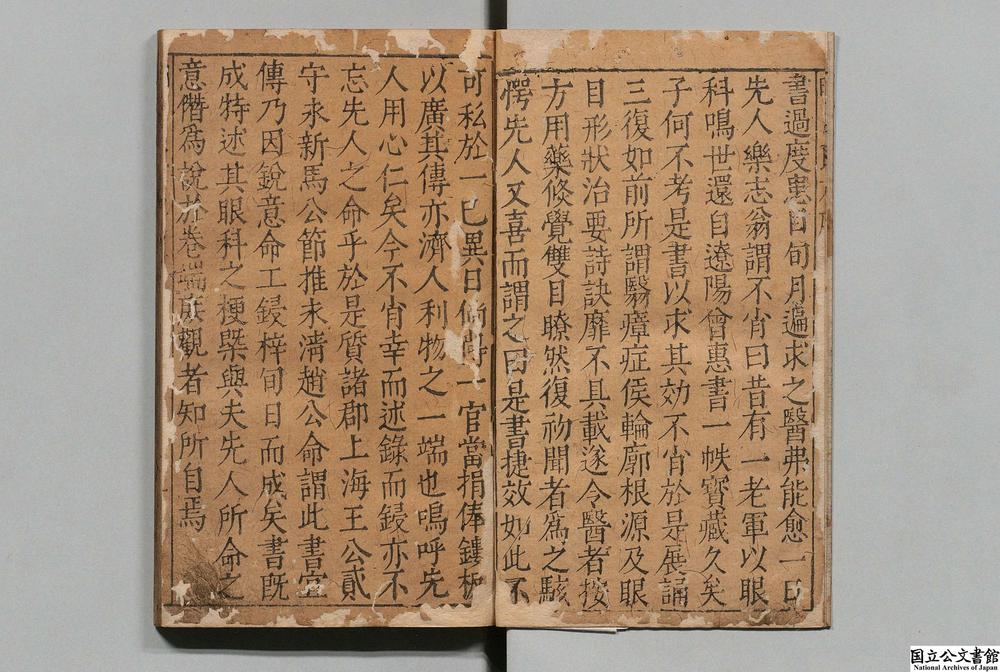 書過度患目旬月遍求之醫弗能愈一日
先人樂志翁謂不肖曰昔有一老軍以眼
科鳴世還自遼陽曾惠書一帙寶藏久矣
子何不考是書以求其効不肖於是展誦
三復如前所謂翳瘴症侯輪廓根源及眼
目形狀治要詩訣靡不具載遂令醫者按
方用藥倏覺雙目瞭然復初聞者為之駭
愕先人又喜而謂之曰是書捷效如此不
可私於一己異日倘一官當捐俸鏤板
以廣其傳亦濟人利物之一端也嗚呼先
人用心仁矣今不肖幸而述錄而鋟亦不
忘先人之命乎於是質諸郡上海王公貳
守永新馬公節推末淸趙公命謂此書宜
傳乃因銳意命工鋟梓旬日而成矣書旣
成特述其眼科之梗槩與夫先人所命之
意僭為說於卷端庶觀者知所自焉
国立公文書館
National Archives of Japan